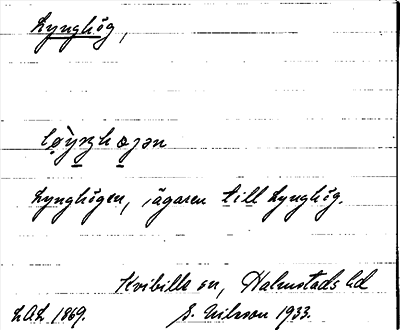 Lynghög,
løyŋhøʒən
Lynghögen, ägaren till Lynghög.
Kvibille sn, Halmstads hd
LAL 1869. S. Nilsson 1933.